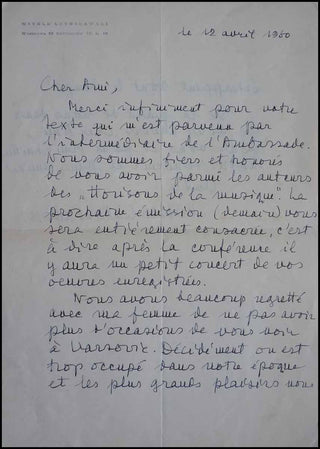 WITOLD LUTOSŁAWSKI
le 12 avril 1960
Cher Ami,
Merci infiniment pour votre
texte qui m'est parvenu par
l'intermédiaire de l'Ambassade.
Nous sommes fiers et honorés
de vous avoir parmi les auteurs
des „Horisons de la musique". La
prochaine émission (demain) vous
sera entièrement consacrée, c'est
à dire après la conférence il
y aura un petit concert de vos
oeuvres enregistrées.
Nous avons beaucoup regretté
avec ma femme de ne pas avoir
plus d'occasions de vous voir
à Varsovie. Décidément on est
trop occupé dans notre époque
et les plus grands plaisirs nous